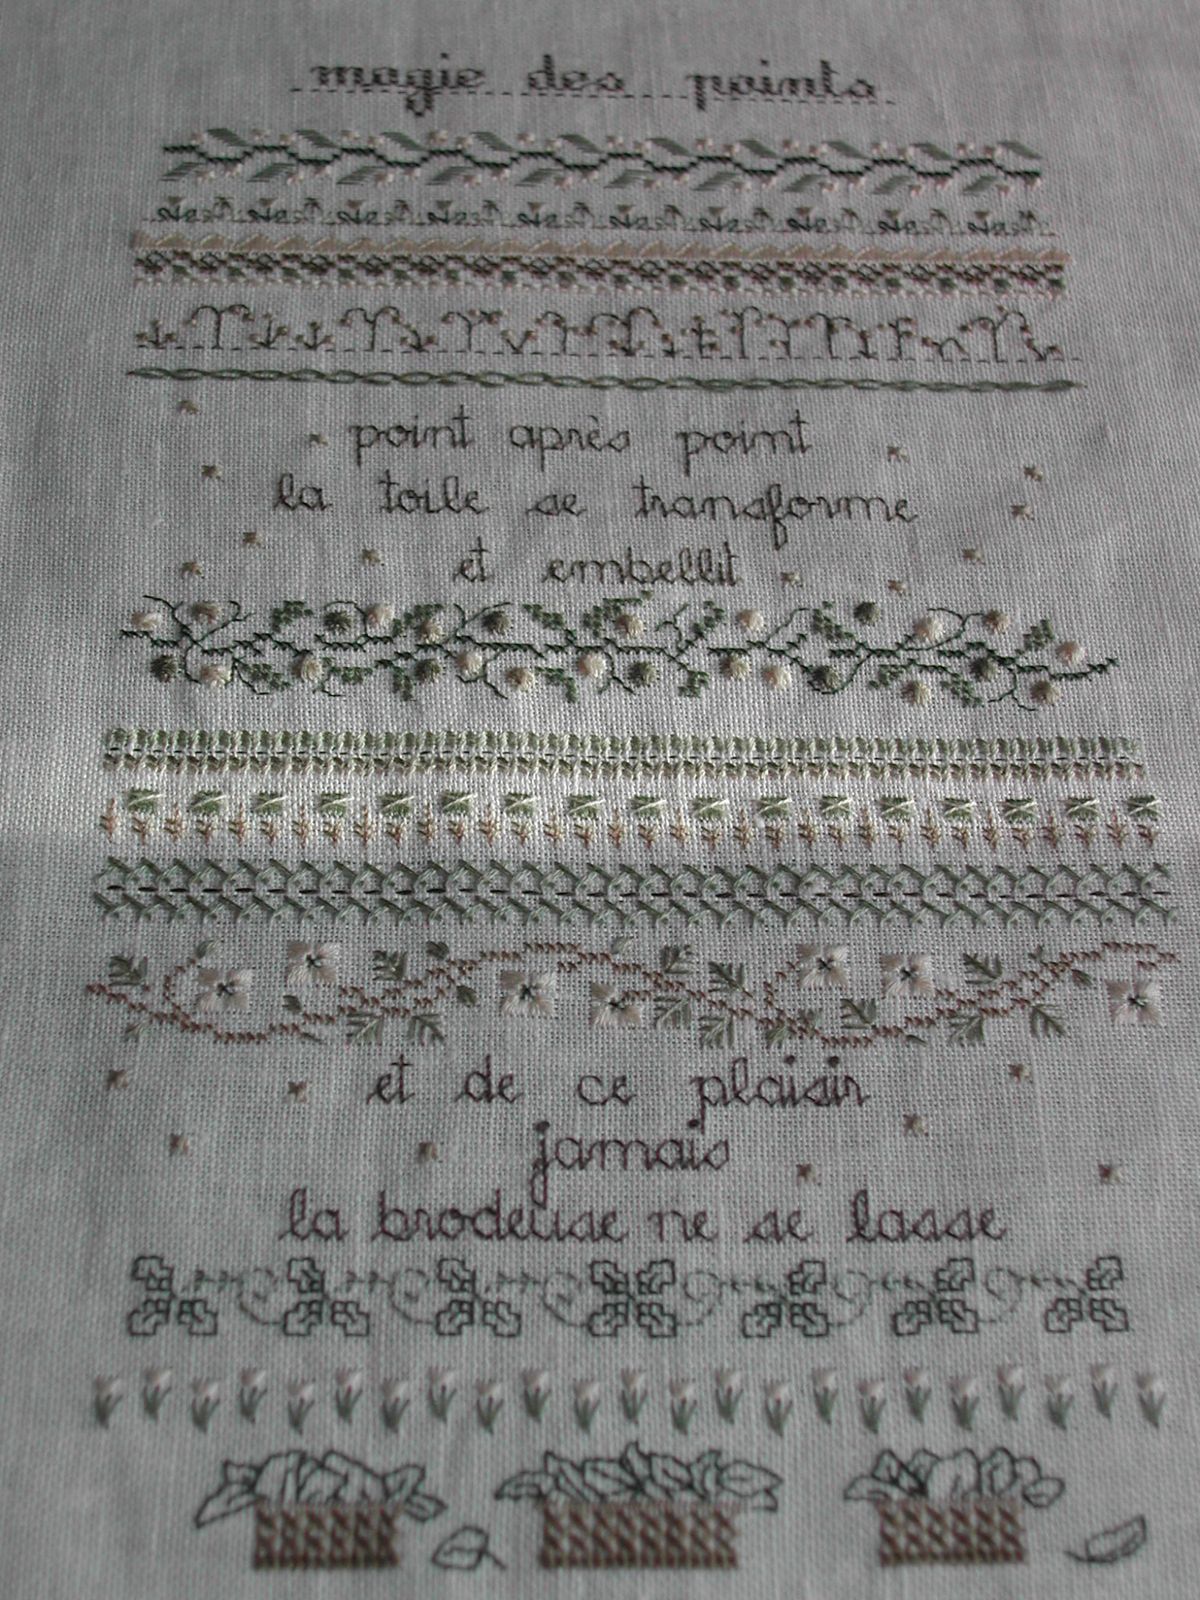 magie des points
point après point
la toile se transforme
et embellit
et de ce plaisir
jamais
la brodeuse ne se lasse